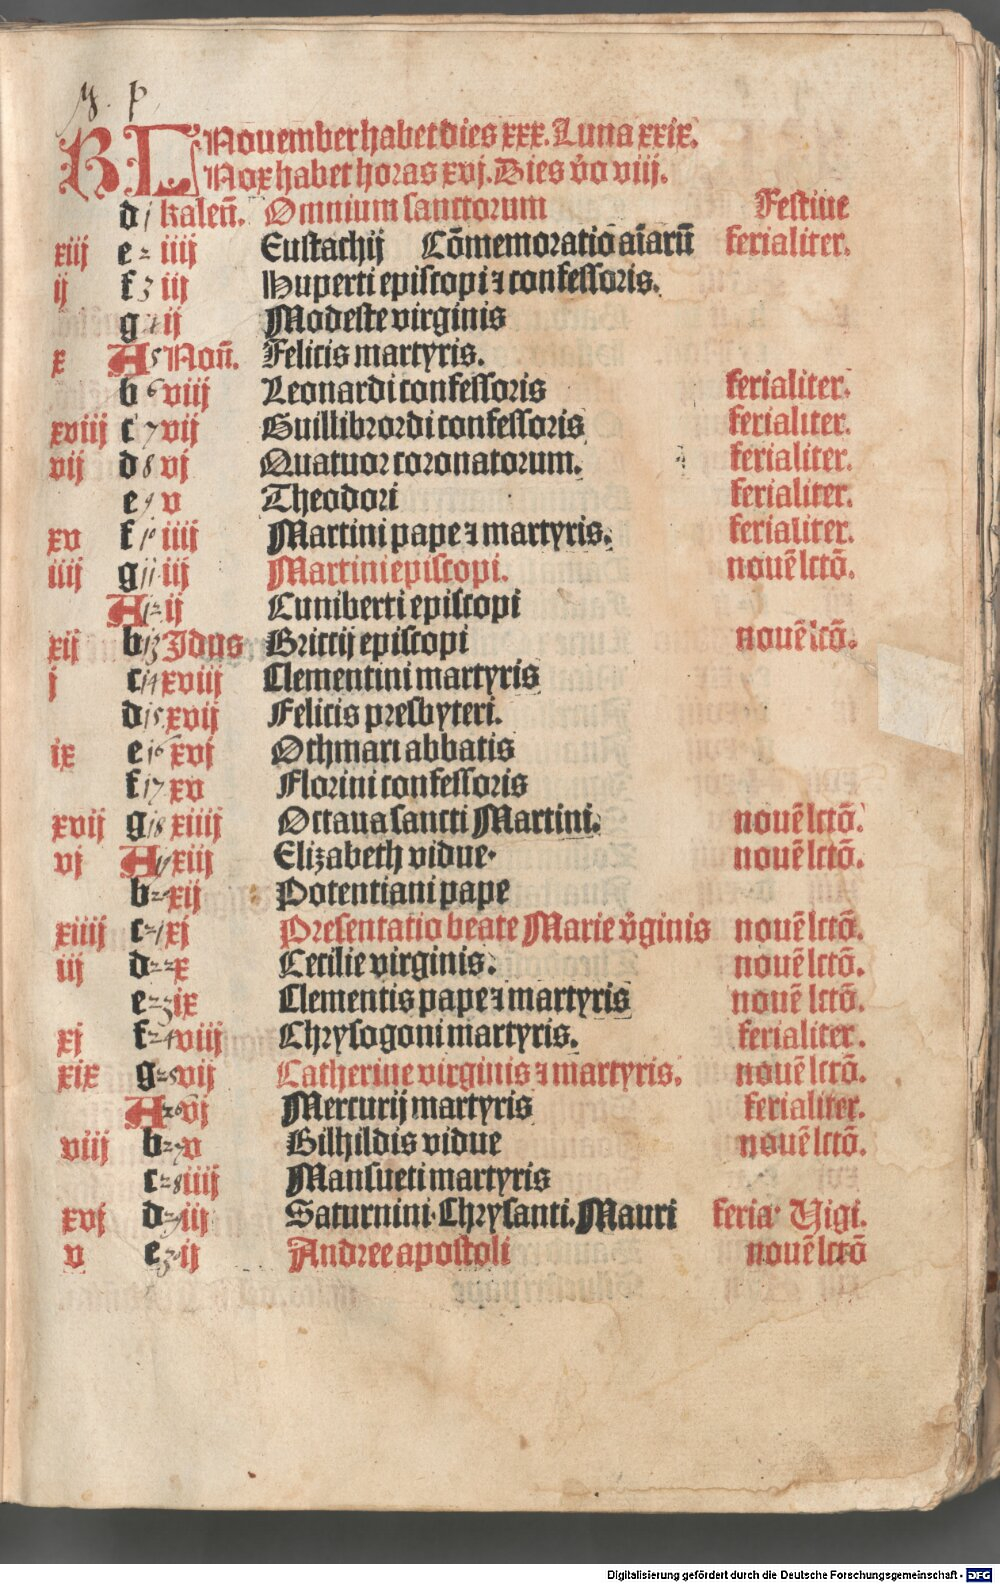 KL Nouember habet dies xxx. Luna xxix.
Nox habet horas xvj. Dies v̄o viij.
d 1 kaleñ. Omnium sanctorum Festiue
xiij e 2 iiij Eustachij Cōmemoratio aīarū ferialiter.
ij f 3 iij Huperti episcopi ⁊ confessoris.
g 4 ij Modeste virginis
x A 5 Noñ. Felicis martyris.
b 6 viij Leonardi confessoris ferialiter.
xviij c 7 vij Guillibrordi confessoris ferialiter.
vij d 8 vj Quatuor coronatorum. ferialiter.
e 9 v Theodori ferialiter.
xv f 10 iiij Martini pape ⁊ martyris. ferialiter.
iiij g 11 iij Martini episcopi. nouē lctō.
A 12 ij Cuniberti episcopi
xij b 13 Jdus Brictij episcopi nouē lctō.
j c 14 xviij Clementini martyris
d 15 xvij Felicis presbyteri.
ix e 16 xvj Othmari abbatis
f 17 xv Florini confessoris
xvij g 18 xiiij Octaua sancti Martini. nouē lctō.
vj A 19 xiij Elizabeth vidue. nouē lctō.
b 20 xij Potentiani pape
xiiij c 21 xj Presentatio beate Marie v̄ginis nouē lctō.
iij d 22 x Cecilie virginis. nouē lctō.
e 23 ix Clementis pape ⁊ martyris nouē lctō.
xj f 24 viij Chrysogoni martyris. ferialiter.
xix g 25 vij Catherine virginis ⁊ martyris. nouē lctō.
A 26 vj Mercurij martyris ferialiter.
viij b 27 v Bilhildis vidue nouē lctō.
c 28 iiij Mansueti martyris
xvj d 29 iij Saturnini. Chrysanti. Mauri feria. Uigi.
v e 30 ij Andree apostoli nouē lctō
Digitalisierung gefördert durch die Deutsche Forschungsgemeinschaft - DFG